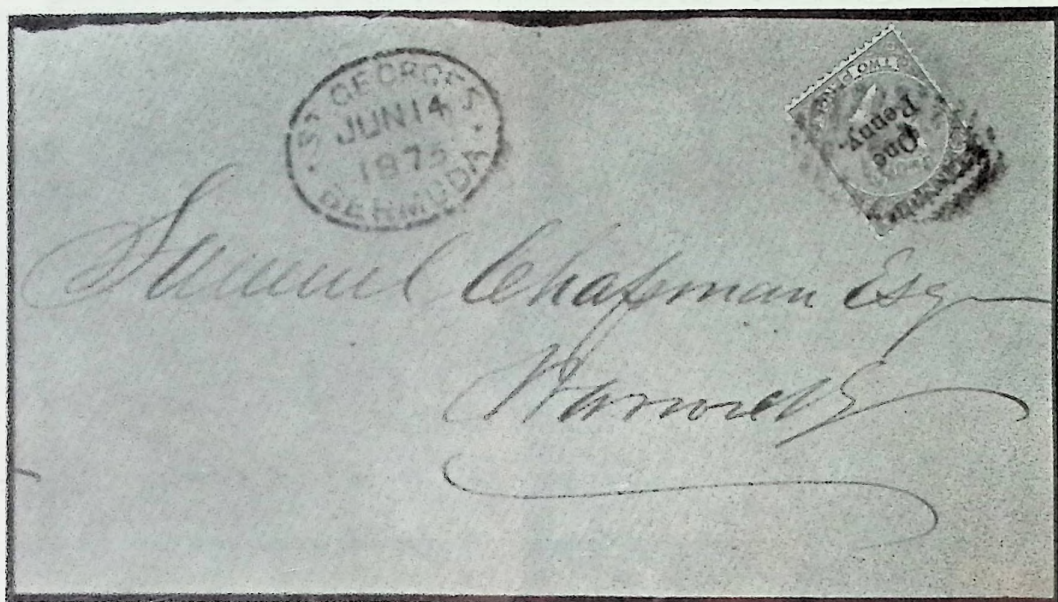 ST GEORGES
JUN 14
1875
BERMUDA
TWO PENCE
One
Penny.
Samuel Chapman Esq
Warwick